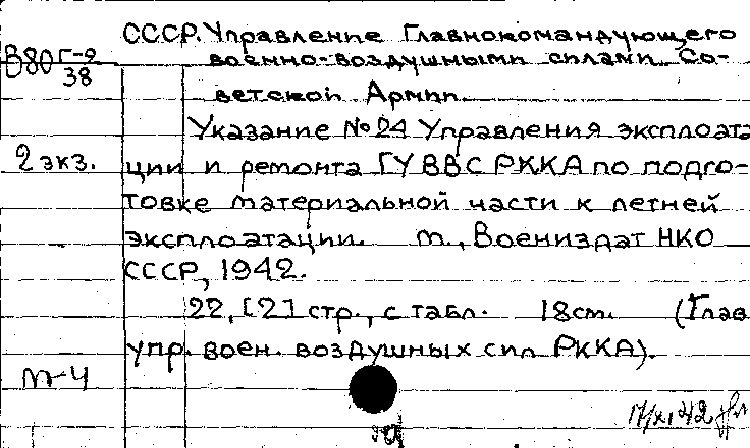 СССР. Управление Главнокомандующего
военно-воздушными силами Со-
ветской Армии
В80 Г-9
38
Указание №24 Управления эксплоата
2 экз.
ции и ремонта ГУ ВВС РККА по подго-
товке материальной части к летней
эксплоатации. М., Воениздат НКО
СССР, 1942.
22, [2] стр., с табл. 18см. (Глав
упр. воен. воздушных сил РККА).
М-4
17/XI 42